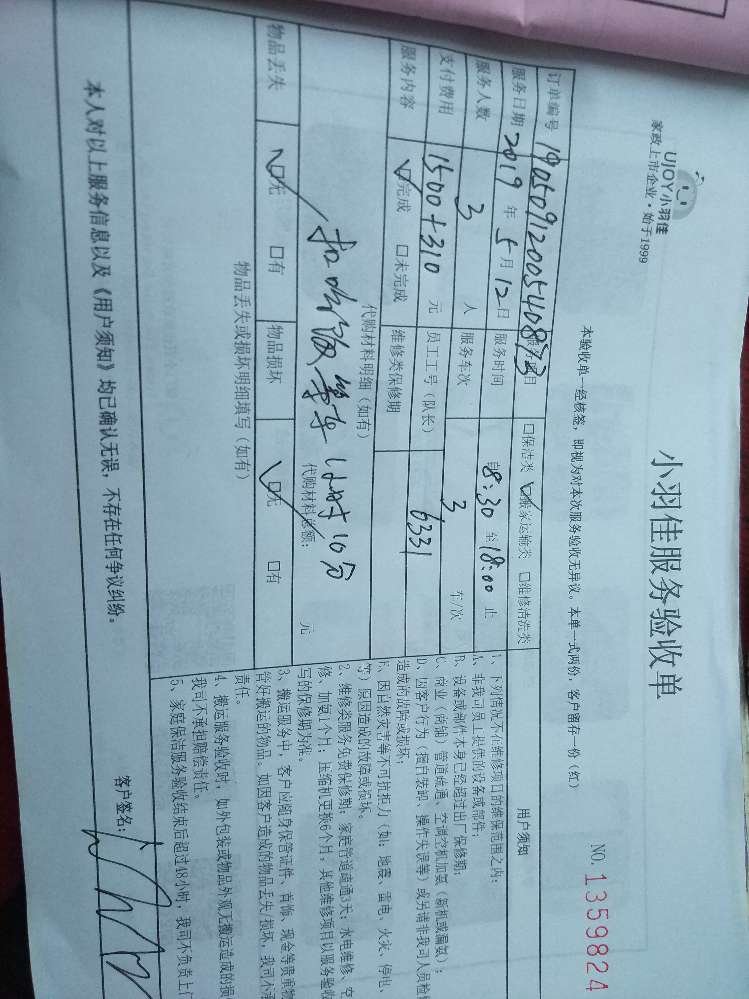 UJOY小羽佳
家政上市企业·始于1999
小羽佳服务验收单
NO. 1359824
本验收单一经核签，即视为对本次服务验收无异议。本单一式两份，客户留存一份（红）
订单编号 1905091200540873 服务项目 □保洁类 ☑搬家运输类 □维修清洗类
服务日期 2019 年 5 月 12 日 服务时间 自8:30 至 18:00 止
服务人数 3 人 服务车次 3 车/次
支付费用 1500+310 元 员工工号（队长） 6331
服务内容 ☑完成 □未完成 维修类保修期
代购材料明细（如有）
代购材料总额： 元
物品丢失 ☑无 □有 物品损坏 ☑无 □有
物品丢失或损坏明细填写（如有）
本人对以上服务信息以及《用户须知》均已确认无误，不存在任何争议纠纷。
客户签名：
用户须知
1、下列情况不在维修项目的维保范围之内：
A、非我司员工提供的设备或部件；
B、设备或部件本身已经超过出厂保修期；
C、商业（商铺）管道疏通、空调空机加氨（新机或漏氨）；
D、因客户行为（擅自装卸、操作失误等）或另请非我司人员检修
造成的故障或损坏；
E、因自然灾害等不可抗拒力（如：地震、雷电、火灾、停电、
等）原因造成的故障或损坏。
2、维修类服务免费保修期：家庭管道疏通3天；水电维修、空
修、加氨1个月，压缩机更换6个月，其他维修项目以服务验收
写的保修期为准。
3、搬运服务中，客户应随身保管证件、首饰、现金等贵重物
管好搬运的物品。如因客户造成的物品丢失/损坏，我司不承
责任。
4、搬运服务验收时，如外包装或物品外观无搬运造成的损
我司不承担赔偿责任。
5、家庭保洁服务验收结束后超过48小时，我司不负责上门